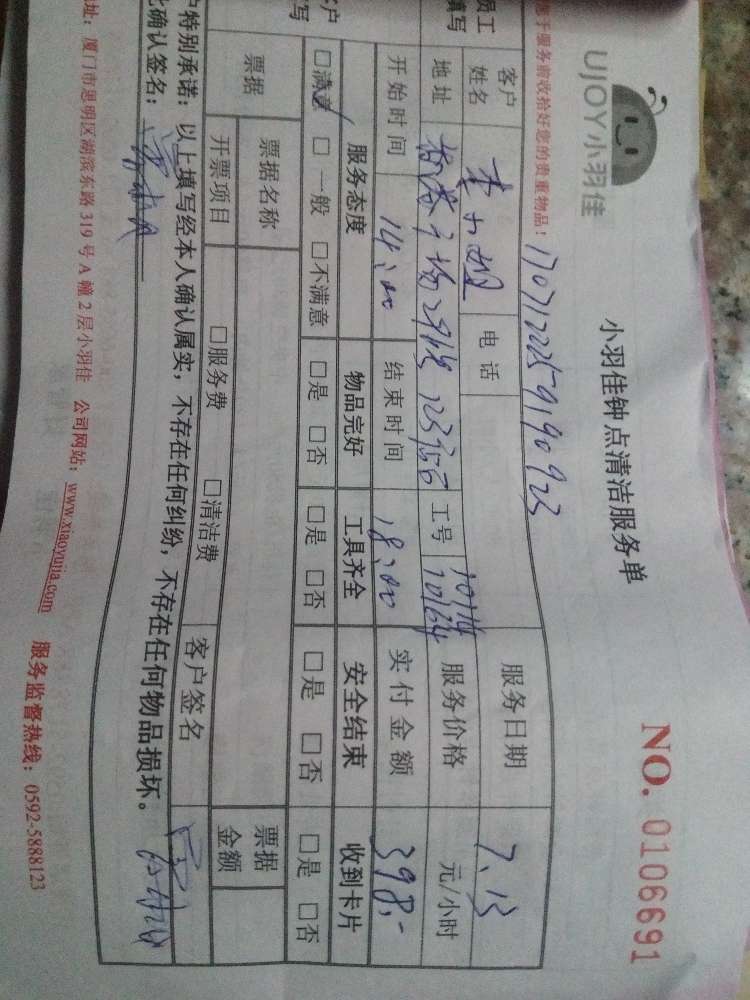 UJOY小羽佳
小羽佳钟点清洁服务单
NO. 0106691
于服务前收拾好您的贵重物品！
客户姓名 李小姐 电话 服务日期 7.13
地址 工号 服务价格 元/小时
开始时间 14:00 结束时间 18:00 实付金额 398.-
服务态度 物品完好 工具齐全 安全结束 收到卡片
□满意 □一般 □不满意 □是 □否 □是 □否 □是 □否 □是 □否
票据 票据名称 票据金额
开票项目 □服务费 □清洁费 客户签名
户特别承诺：以上填写经本人确认属实，不存在任何纠纷，不存在任何物品损坏。
确认签名：
址：厦门市思明区湖滨东路319号A幢2层小羽佳 公司网站：www.xiaoyujia.com 服务监督热线：0592-5888123